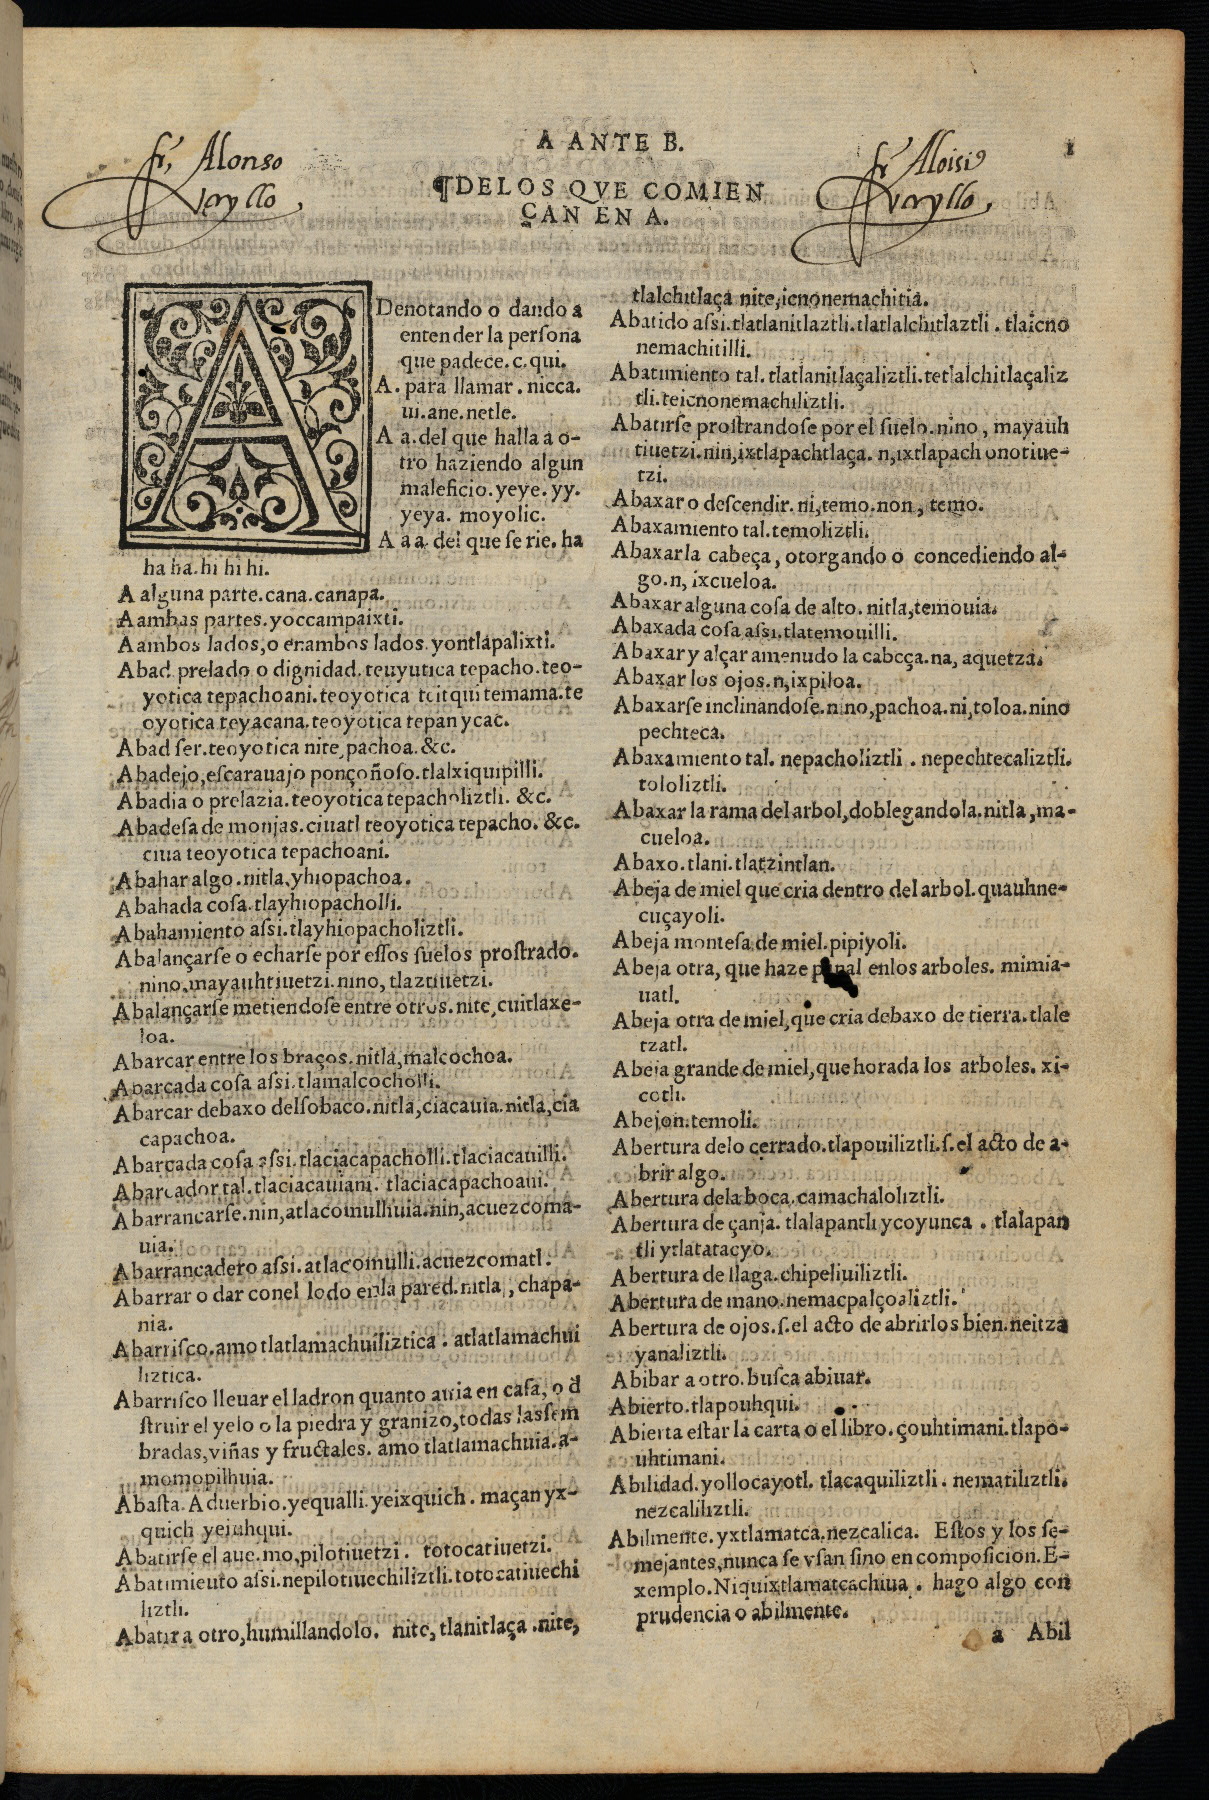 A ANTE B.
1
fr, Alonso
fr Aloisi9
¶DELOS QVE COMIEN
ÇAN EN A.
A
Denotando o dando a
entender la perſona
que padece. c. qui.
A. para llamar. nicca.
ui. ane. netle.
A a. del que halla a o-
tro haziendo algun
maleficio. yeye. yy.
yeya. moyolic.
A a a. del que ſe rie. ha
ha ha. hi hi hi.
A alguna parte. cana. canapa.
A ambas partes. yoccampaixti.
A ambos lados, o en ambos lados. yontlapalixti.
Abad. prelado o dignidad. teuyutica tepacho. teo-
yotica tepachoani. teoyotica teitqui temama. te
oyotica teyacana. teoyotica tepan ycac.
Abad ſer. teoyotica nite, pachoa. &c.
Abadejo, eſcarauajo ponçoñoſo. tlalxiquipilli.
Abadia o prelazia. teoyotica tepacholiztli. &c.
Abadeſa de monjas. ciuatl teoyotica tepacho. &c.
ciua teoyotica tepachoani.
Abahar algo. nitla, yhiopachoa.
Abahada coſa. tlayhiopacholli.
Abahamiento aſsi. tlayhiopacholiztli.
Abalançarſe o echarſe por eſſos ſuelos proſtrado.
nino, mayauhtiuetzi. nino, tlaztiuetzi.
Abalançarſe metiendoſe entre otros. nite, cuitlaxe-
loa.
Abarcar entre los braços. nitla, malcochoa.
Abarcada coſa aſsi. tlamalcocholli.
Abarcar debaxo del ſobaco. nitla, ciacauia. nitla, cia
capachoa.
Abarcada coſa aſsi. tlaciacapacholli. tlaciacauilli.
Abarcador tal. tlaciacauiani. tlaciacapachoani.
Abarrancarſe. nin, atlacomulhuia. nin, acuezcoma-
uia.
Abarrancadero aſsi. atlacomulli. acuezcomatl.
Abarrar o dar con el lodo en la pared. nitla, chapa-
nia.
Abarriſco. amo tlatlamachuiliztica. atlatlamachui
liztica.
Abarriſco lleuar el ladron quanto auia en caſa, o d̃
ſtruir el yelo o la piedra y granizo, todas las ſem
bradas, viñas y fructales. amo tlatlamachuia. a-
momopilhuia.
Abaſta. Aduerbio. yequalli. yeixquich. maçan yx-
quich yejuhqui.
Abatirſe el aue. mo, pilotiuetzi. totocatiuetzi.
Abatimiento aſsi. nepilotiuechiliztli. totocatiuechi
liztli.
Abatir a otro, humillandolo. nite, tlanitlaça. nite,
tlalchitlaça nite, icnonemachitia.
Abatido aſsi. tlatlanitlaztli. tlatlalchitlaztli. tlaicno
nemachitilli.
Abatimiento tal. tlatlanitlaçaliztli. tetlalchitlaçaliz
tli. teicnonemachiliztli.
Abatirſe proſtrandoſe por el ſuelo. nino, mayauh
tiuetzi. nin, ixtlapachtlaça. n, ixtlapach onotiue-
tzi.
Abaxar o deſcendir. ni, temo. non, temo.
Abaxamiento tal. temoliztli.
Abaxar la cabeça, otorgando o concediendo al-
go. n, ixcueloa.
Abaxar alguna coſa de alto. nitla, temouia.
Abaxada coſa aſsi. tlatemouilli.
Abaxar y alçar amenudo la cabeça. na, aquetza.
Abaxar los ojos. n, ixpiloa.
Abaxarſe inclinandoſe. nino, pachoa. ni, toloa. nino
pechteca.
Abaxamiento tal. nepacholiztli. nepechtecaliztli.
tololiztli.
Abaxar la rama del arbol, doblegandola. nitla, ma-
cueloa.
Abaxo. tlani. tlatzintlan.
Abeja de miel que cria dentro del arbol. quauhne-
cuçayoli.
Abeja monteſa de miel. pipiyoli.
Abeja otra, que haze panal en los arboles. mimia-
uatl.
Abeja otra de miel, que cria debaxo de tierra. tlale
tzatl.
Abeja grande de miel, que horada los arboles. xi-
cotli.
Abejon. temoli.
Abertura delo cerrado. tlapouiliztli. ſ. el acto de a-
brir algo.
Abertura dela boca. camachaloliztli.
Abertura de çanja. tlalapantli ycoyunca. tlalapan
tli ytlatatacyo.
Abertura de llaga. chipeliuiliztli.
Abertura de mano. nemacpalçoaliztli.
Abertura de ojos. ſ. el acto de abrirlos bien. neitza
yanaliztli.
Abibar a otro. buſca abiuar.
Abierto. tlapouhqui.
Abierta eſtar la carta o el libro. çouhtimani. tlapo-
uhtimani.
Abilidad. yollocayotl. tlacaquiliztli. nematiliztli.
nezcaliliztli.
Abilmente. yxtlamatca. nezcalica. Eſtos y los ſe-
mejantes, nunca ſe vſan ſino en compoſicion. E-
xemplo. Niquixtlamatcachiua. hago algo con
prudencia o abilmente.
a Abil